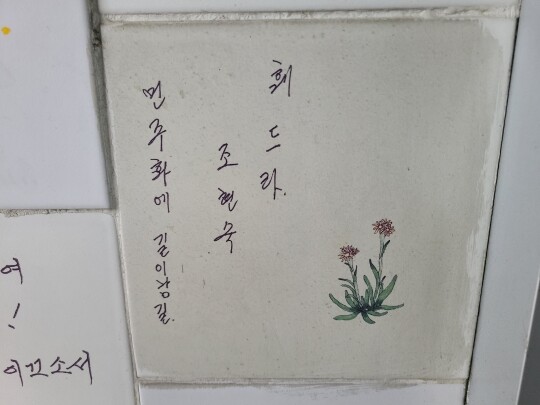 휘드라.
조현욱
민주화에 길이남길.
여
!
이끄소서